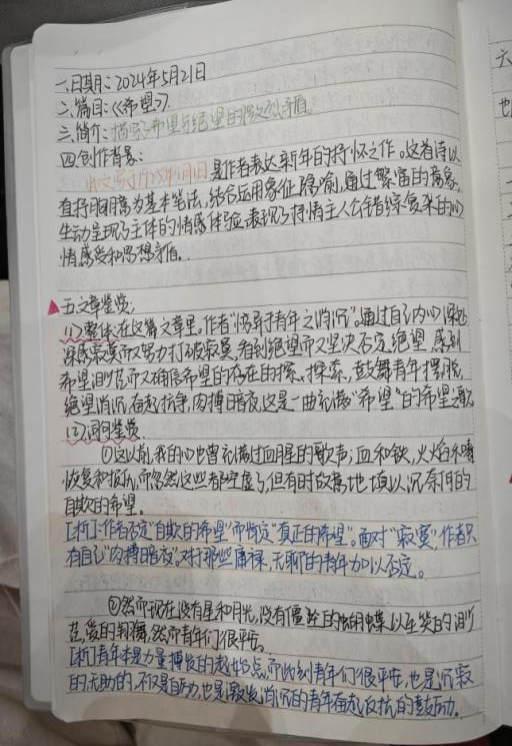 一、日期：2024年5月21日
二、篇目：《希望》
三、简介：描写了希望与绝望的深刻矛盾。
四、创作背景：
此文写于1925年1月1日是作者表达新年的抒怀之作。这首诗以
直抒胸臆为基本笔法，结合运用象征、隐喻，通过繁富的意象，
生动呈现了主体的情感体验，表现了抒情主人公错综复杂的心
情感受和思想矛盾。
五、文章鉴赏：
(1)整体：在这篇文章里，作者“惊异于青年之消沉”。通过自己内心深处
深感寂寞而又努力打破寂寞，看到绝望而又坚决否定绝望，感到
希望渺茫而又确信希望的存在的探索，鼓舞青年摆脱
绝望消沉，奋起抗争，肉搏暗夜，这是一曲充满“希望”的希望之歌
(2)词句鉴赏
①这以前，我的心也曾充满过血腥的歌声；血和铁，火焰和毒
恢复和报仇，而忽然这些都空虚了，但有时故意地填以没奈何的
自欺的希望。
[析]：作者否定“自欺的希望”而肯定“真正的希望”。面对“寂寞”，作者只
有自己“肉搏暗夜”。对于那些庸碌、无聊的青年加以否定。
②然而现在没有星和月光，没有僵坠的蝴蝶以至笑的渺
茫，爱的翔舞，然而青年们很平安。
[析]青年本是力量搏发的起始点，而此刻青年们很平安，也是沉寂
的无助的，不仅是自励，也是激发消沉的青年奋起反抗的鼓动。
六
也